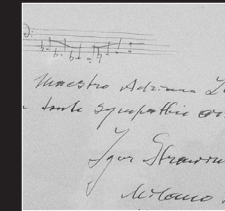 Maestro Adriano
tante sympathie
Igor Strawin
Milano